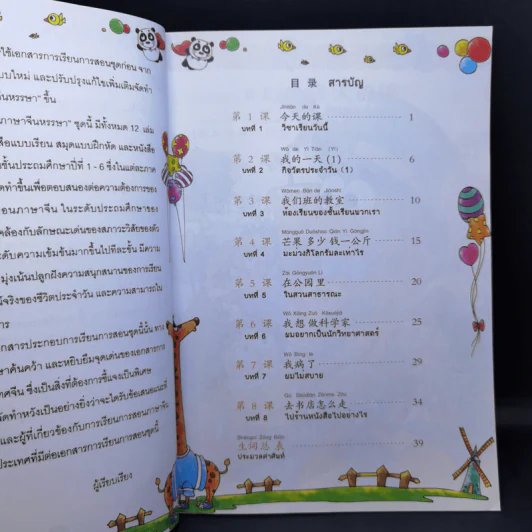 ใช้เอกสารการเรียนการสอนชุดก่อน จาก
แบบใหม่ และปรับปรุงแก้ไขเพิ่มเติมจัดทำ
จีนหรรษา" ขึ้น
ภาษาจีนหรรษา" ชุดนี้ มีทั้งหมด 12 เล่ม
สือแบบเรียน สมุดแบบฝึกหัด และหนังสือ
ชั้นประถมศึกษาปีที่ 1 - 6 ซึ่งในแต่ละภาค
จัดทำขึ้นเพื่อตอบสนองต่อความต้องการของ
สอนภาษาจีน ในระดับประถมศึกษาของ
คล้องกับลักษณะเด่นของสภาวะวิสัยของตัว
ระดับความเข้มข้นมากขึ้นไปทีละขั้น มีความ
มุ่งเน้นปลูกฝังความสนุกสนานของการเรียน
จริงของชีวิตประจำวัน และความสามารถใน
การ
เอกสารประกอบการเรียนการสอนชุดนี้นั้น ทาง
ษาค้นคว้า และหยิบยืมจุดเด่นของเอกสารการ
ทศจีน ซึ่งเป็นสิ่งที่ต้องการชี้แจงเป็นพิเศษ
จัดทำหวังเป็นอย่างยิ่งว่าจะได้รับข้อเสนอแนะที่
และผู้ที่เกี่ยวข้องกับการเรียนการสอนภาษาจีน
ประเทศที่มีต่อเอกสารการเรียนการสอนชุดนี้
ผู้เรียบเรียง
目 录 สารบัญ
Jīntiān de Kè
第 1 课 今天的课 1
บทที่ 1 วิชาเรียนวันนี้
Wǒ de Yì Tiān (Yī)
第 2 课 我的一天(1) 6
บทที่ 2 กิจวัตรประจำวัน (1)
Wǒmen Bān de Jiàoshì
第 3 课 我们班的教室 10
บทที่ 3 ห้องเรียนของชั้นเรียนพวกเรา
Mángguǒ Duōshao Qián Yì Gōngjīn
第 4 课 芒果多少钱一公斤 15
บทที่ 4 มะม่วงกิโลกรัมละเท่าไร
Zài Gōngyuán Li
第 5 课 在公园里 20
บทที่ 5 ในสวนสาธารณะ
Wǒ Xiǎng Zuò Kēxuéjiā
第 6 课 我想做科学家 25
บทที่ 6 ผมอยากเป็นนักวิทยาศาสตร์
Wǒ Bìng le
第 7 课 我病了 29
บทที่ 7 ผมไม่สบาย
Qù Shūdiàn Zěnme Zǒu
第 8 课 去书店怎么走 34
บทที่ 8 ไปร้านหนังสือไปอย่างไร
Shēngcí Zǒng Biǎo
生词总表 39
ประมวลคำศัพท์